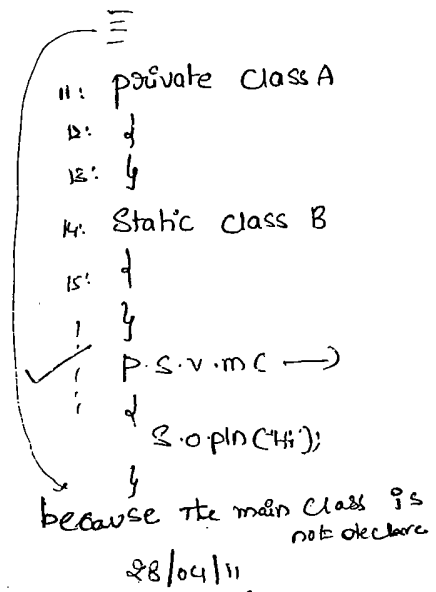 11: private class A
12: {
13: }
14: Static class B
15: {
}
P.S.v.m( —)
{
S.o.pln("Hi");
}
because the main class is
not declare
28/04/11